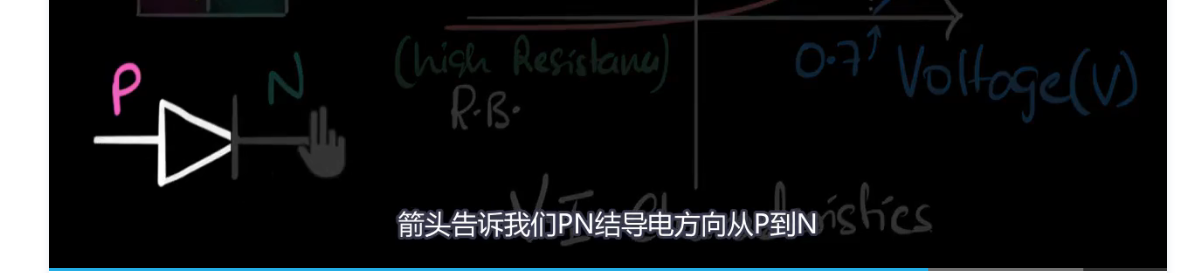 (high Resistance)
0.7
Voltage(V)
R.B.
P
N
VI Characteristics
箭头告诉我们PN结导电方向从P到N